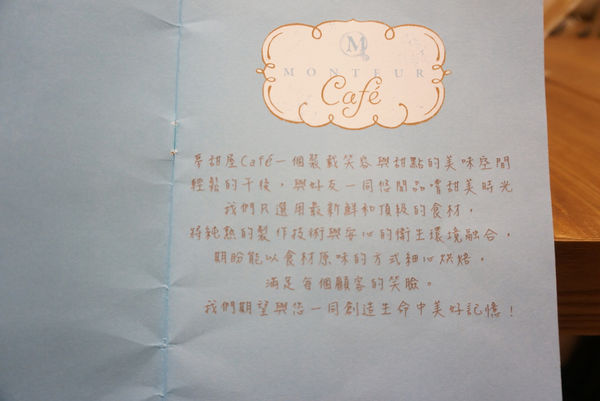 M
MONTEUR
Café
夢甜屋Café一個裝載笑容與甜點的美味空間
輕鬆的午後，與好友一同悠閒品嚐甜美時光
我們只選用最新鮮和頂級的食材，
將純熟的製作技術與安心的衛生環境融合，
期盼能以食材原味的方式細心烘焙，
滿足每個顧客的笑臉。
我們期望與您一同創造生命中美好記憶！